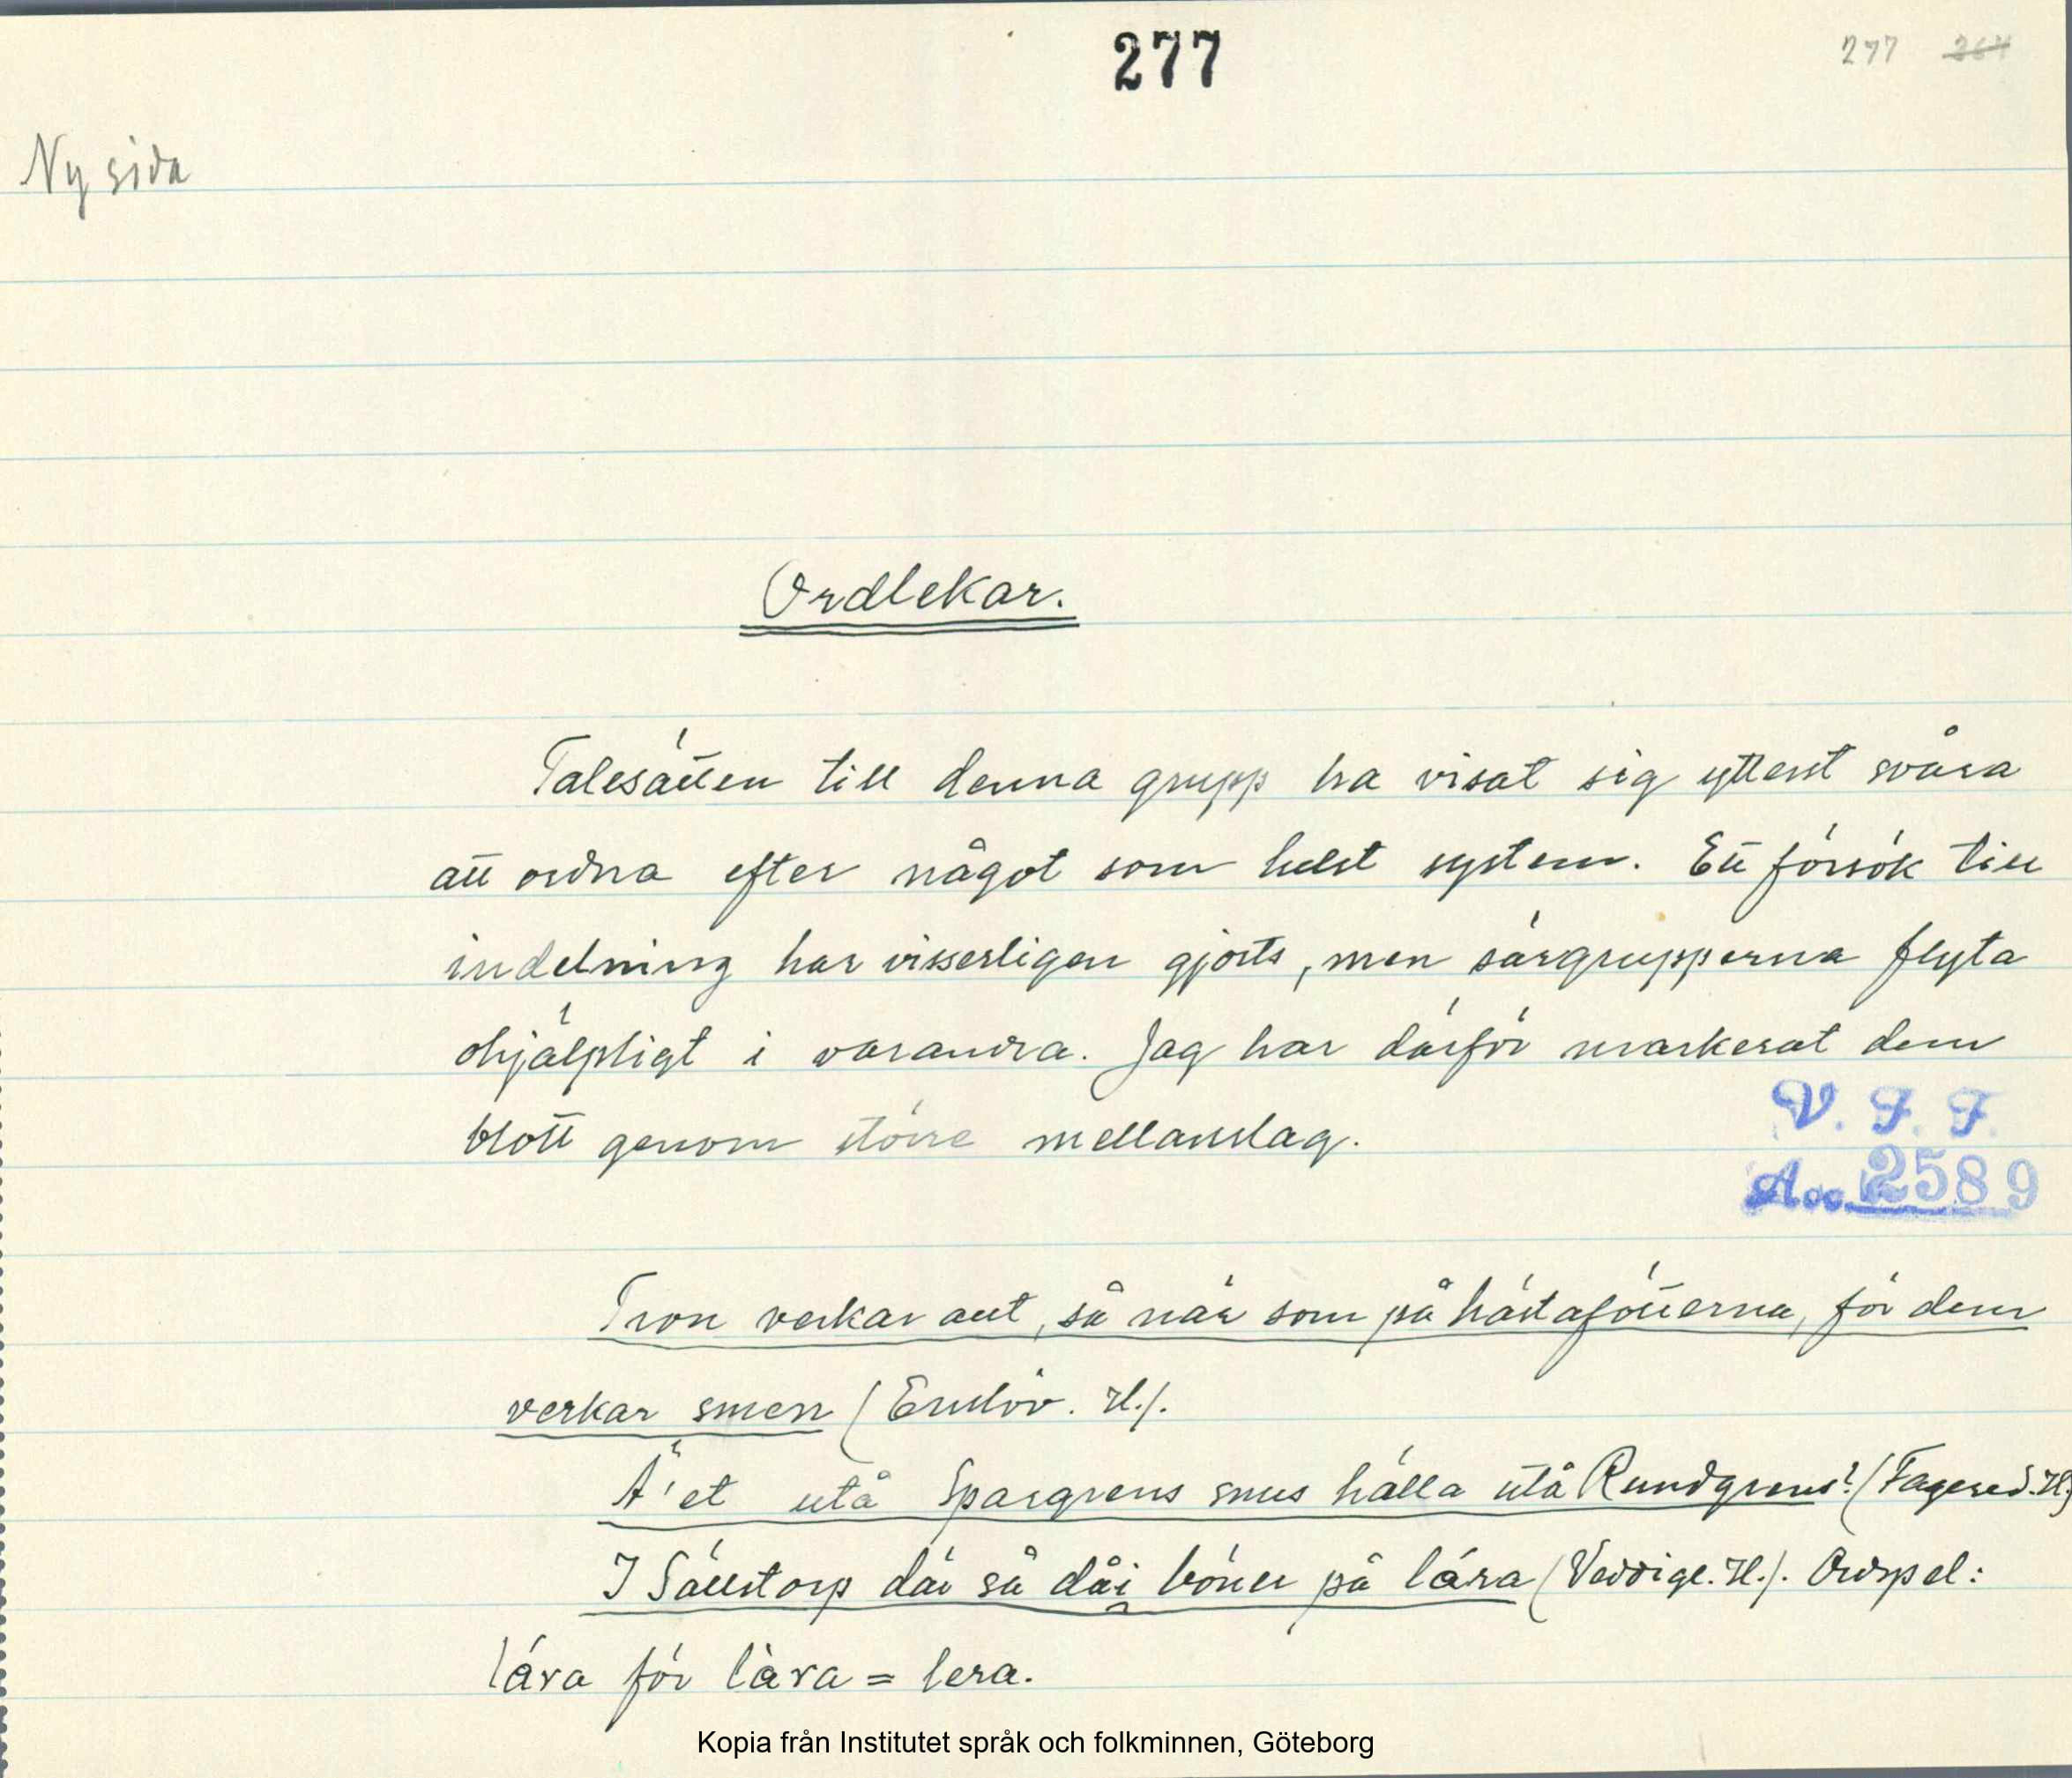 277
277 264
Ny sida
Ordlekar.
Talesätten till denna grupp ha visat sig ytterst svåra
att ordna efter något som helst system. Ett försök till
indelning har visserligen gjorts, men särgrupperna flyta
ohjälpligt i varandra. Jag har därför markerat dem
blott genom större mellanslag.
V. F. F.
Acc. 2589
Tron verkar allt, så när som på hästafötterna, för dem
verkar smen (Enslöv. Hl.).
Ä'et utå Spargrens snus hälla utå Rundgrens? (Fagered. Hl.)
I Sällstorp där så dåi böner på lära (Veddige. Hl.). Ordspel:
lára för làra = lera.
Kopia från Institutet språk och folkminnen, Göteborg